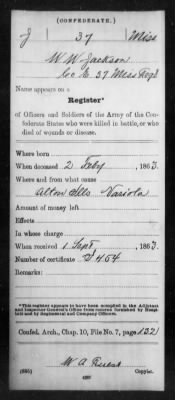 (CONFEDERATE.)
J 37 Miss
W. W. Jackson
Co. E. 37 Miss Regt
Name appears on a
Register*
of Officers and Soldiers of the Army of the Confederate States who were killed in battle, or who
died of wounds or disease.
Where born
When deceased 2 Feby, 1863.
Where and from what cause
Alton Ills Variola
Amount of money left
Effects
In whose charge
When received 1 Sept, 1863.
Number of certificate 454
Remarks:
*This register appears to have been compiled in the Adjutant
and Inspector General's Office from returns furnished by Hospitals
and by Regimental and Company Officers.
Confed. Arch., Chap. 10, File No. 7, page 132
W. A.
Copyist.